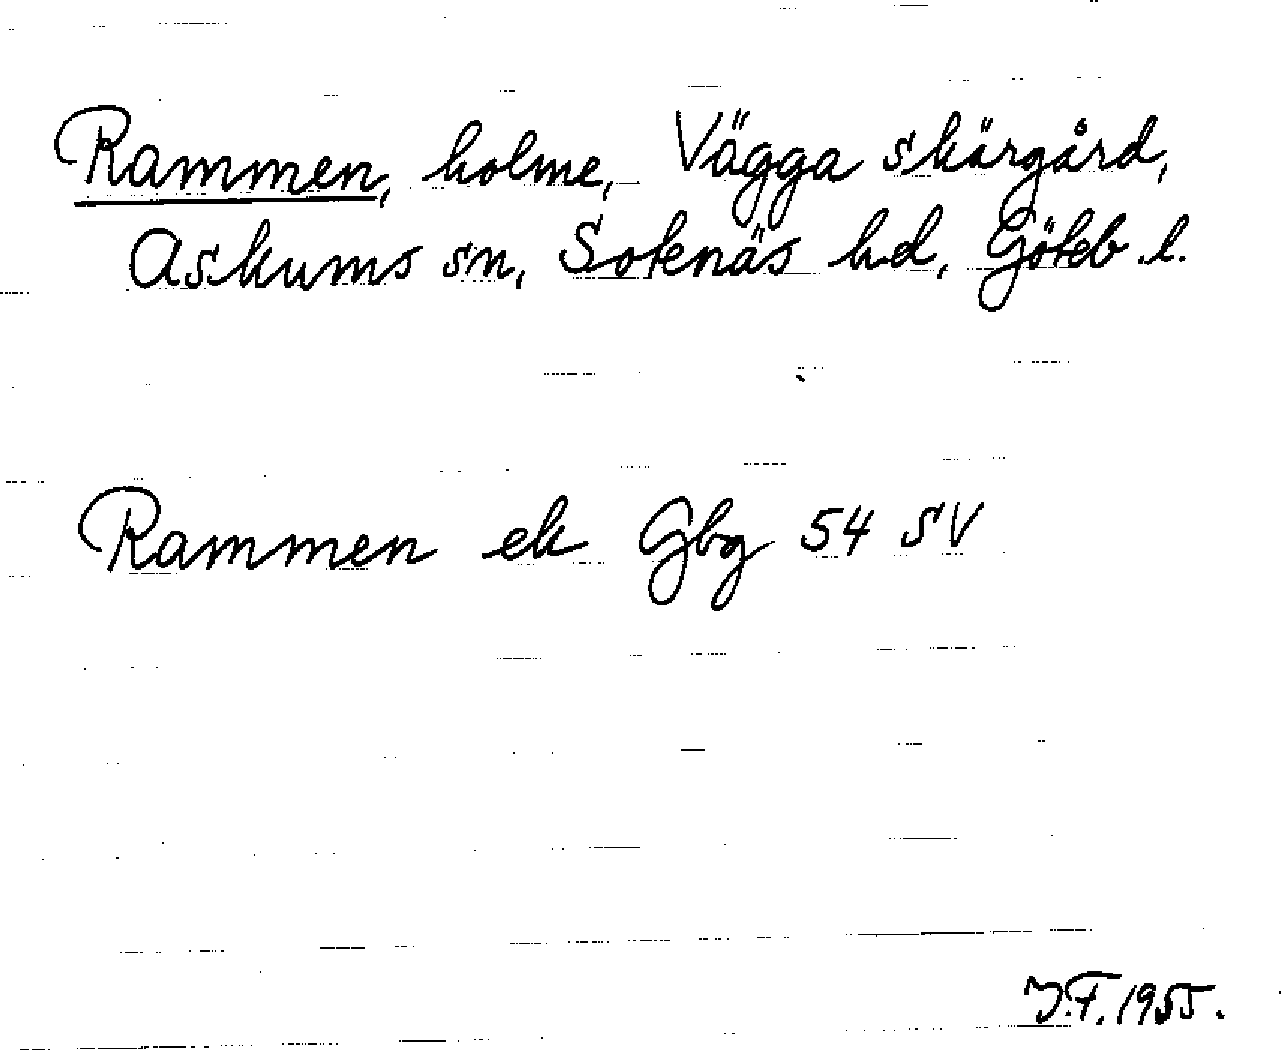 Rammen, holme, Vägga skärgård,
Askums sn, Sotenäs hd, Göteb. l.
Rammen ek Gbg 54 SV
J.F. 1955.